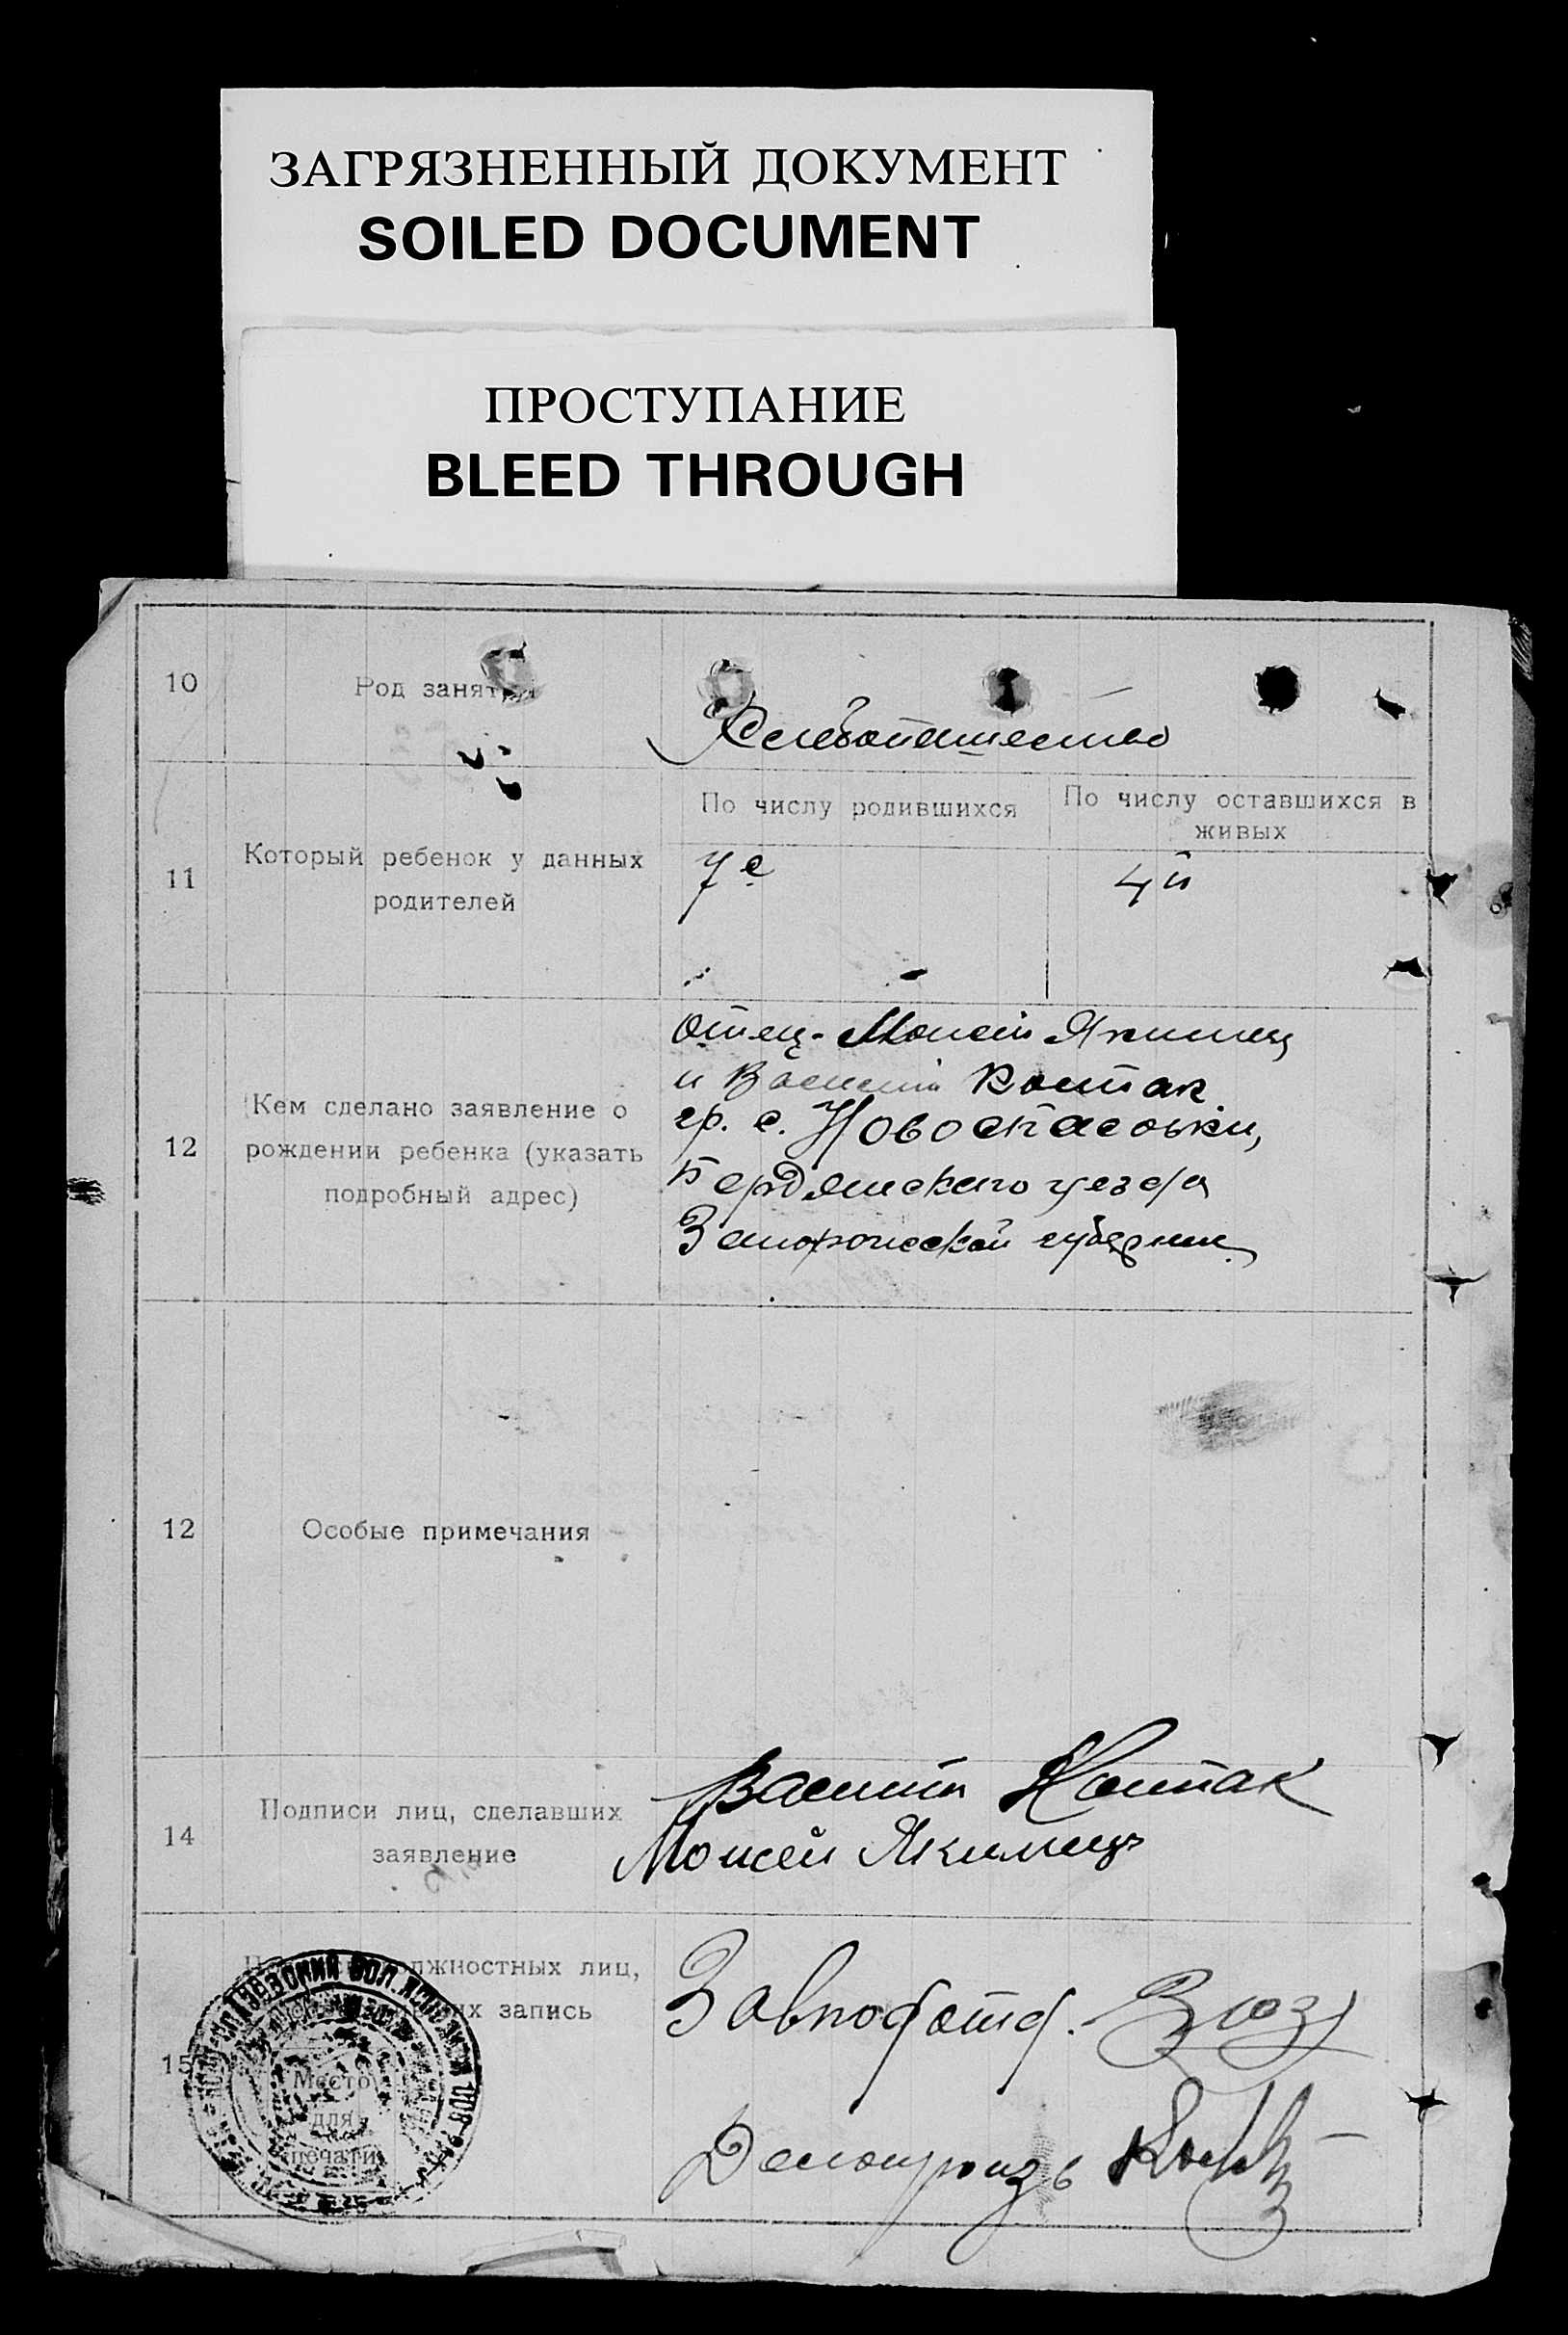 ЗАГРЯЗНЕННЫЙ ДОКУМЕНТ
SOILED DOCUMENT
ПРОСТУПАНИЕ
BLEED THROUGH
10
Род занятия
Хлебопашество
По числу родившихся
По числу оставшихся в
живых
11
Который ребенок у данных
родителей
7е
4й
12
Кем сделано заявление о
рождении ребенка (указать
подробный адрес)
Отец - Моисей Якимец
и Василий Коштак
гр. с. Новоспасовки,
Бердянского уезда
Запорожской губернии
12
Особые примечания
14
Подписи лиц, сделавших
заявление
Василий Коштак
Моисей Якимец
15
должностных лиц,
запись
Место
для
печати
Завподотд.
Делопроизв